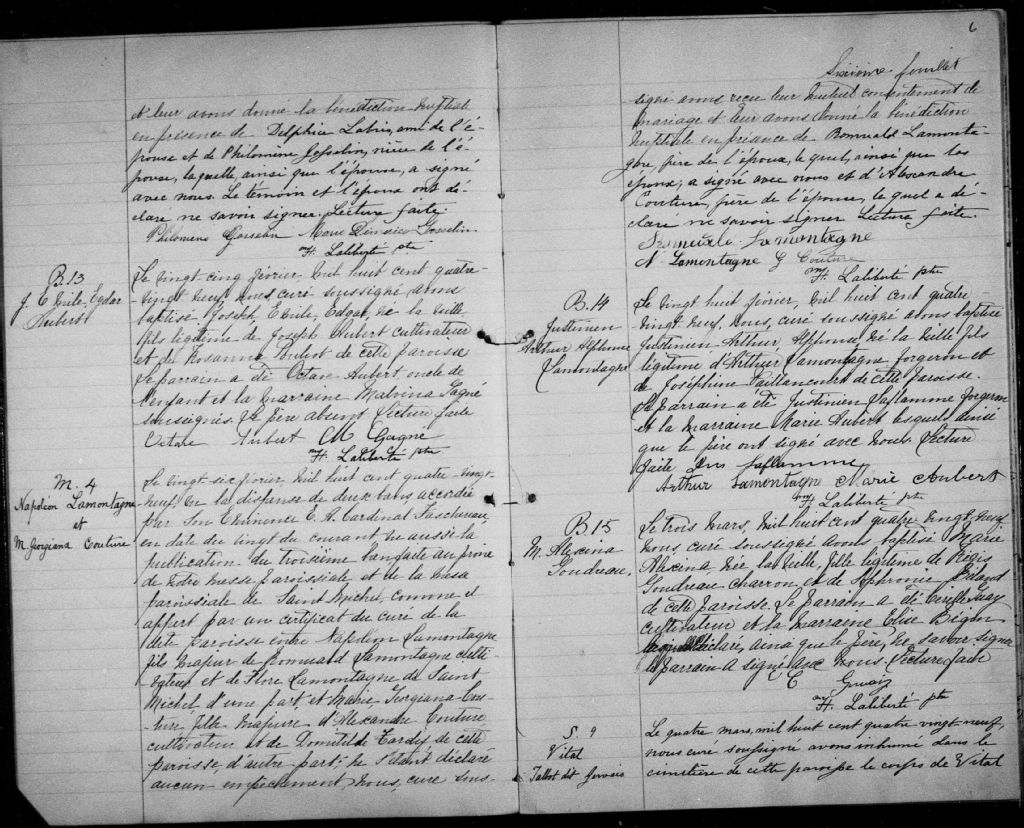 et leur avons donné la bénédiction nuptiale
en présence de Delphin Labrie, ami de l'é-
pouse et de Philomène Gosselin, nièce de l'é-
pouse, laquelle, ainsi que l'épouse, a signé
avec nous. Le témoin et l'époux ont dé-
claré ne savoir signer. Lecture faite.
Philomene Gosselin Marie Gosselin
H. Laliberté ptre
B. 13
J. Emile. Edgar
Aubert
Le vingt cinq février mil huit cent quatre-
vingt neuf nous curé soussigné avons
baptisé Joseph, Emile, Edgar, né la veille
fils légitime de Joseph Aubert cultivateur
et de Rosanna de cette paroisse
Le parrain a été Octave Aubert oncle de
l'enfant et la marraine Malvina Gagné
soussignés. Le père absent Lecture faite
Octave Aubert M Gagne
H. Laliberté ptre
M. 4
Napoléon Lamontagne
et
M. Georgiana Couture
Le vingt six février mil huit cent quatre-vingt-
neuf, vu la dispense de deux bans accordée
par Son Eminence E. A. Cardinal Taschereau,
en date du vingt du courant vu aussi la
publication du troisième ban faite au prône
de notre messe paroissiale et de la messe
paroissiale de Saint Michel, comme il
appert par un certificat du curé de la
dite paroisse entre Napoléon Lamontagne
fils majeur de Romuald Lamontagne culti-
vateur et de Flore Lamontagne de Saint
Michel d'une part, et Marie Georgiana Cou-
ture fille majeure d'Alexandre Couture
cultivateur et de Domitilde Tardif de cette
paroisse, d'autre part; ne s'étant déclaré
aucun empêchement, nous, curé sous-
6
Sixième feuillet
signé avons reçu leur mutuel consentement de
mariage et leur avons donné la bénédiction
nuptiale en présence de Romuald Lamonta-
gne, père de l'époux, lequel, ainsi que les
époux, a signé avec nous et d'Alexandre
Couture, père de l'épouse, lequel a dé-
claré ne savoir signer Lecture faite.
Romuald Lamontagne
N Lamontagne G Couture
H. Laliberté ptre
B. 14
Justinien
Arthur Alphonse
Lamontagne
Le vingt huit février, mil huit cent quatre-
vingt neuf, nous, curé soussigné avons baptisé
Justinien, Arthur, Alphonse né la veille fils
légitime d'Arthur Lamontagne forgeron et
de Joséphine Vaillancourt de cette paroisse.
Le parrain a été Justinien Laflamme forgeron
et la marraine Marie Aubert lesquels ainsi
que le père ont signé avec nous Lecture
faite Laflamme
Arthur Lamontagne Marie Aubert
H. Laliberté ptre
B. 15
M. Alexina
Goudreau.
Le trois mars, mil huit cent quatre vingt neuf
nous curé soussigné avons baptisé Marie
Alexina née la veille, fille légitime de Régis
Goudreau charron et de
de cette paroisse. Le parrain a été Cyrille Guay
cultivateur et la marraine
déclaré, ainsi que le père, ne savoir signer
le parrain a signé avec nous. Lecture faite
C
H. Laliberté ptre
S. 9
Vital
Talbot dit Gervais
Le quatre mars, mil huit cent quatre vingt-neuf,
nous curé soussigné avons inhumé dans le
cimetière de cette paroisse le corps de Vital